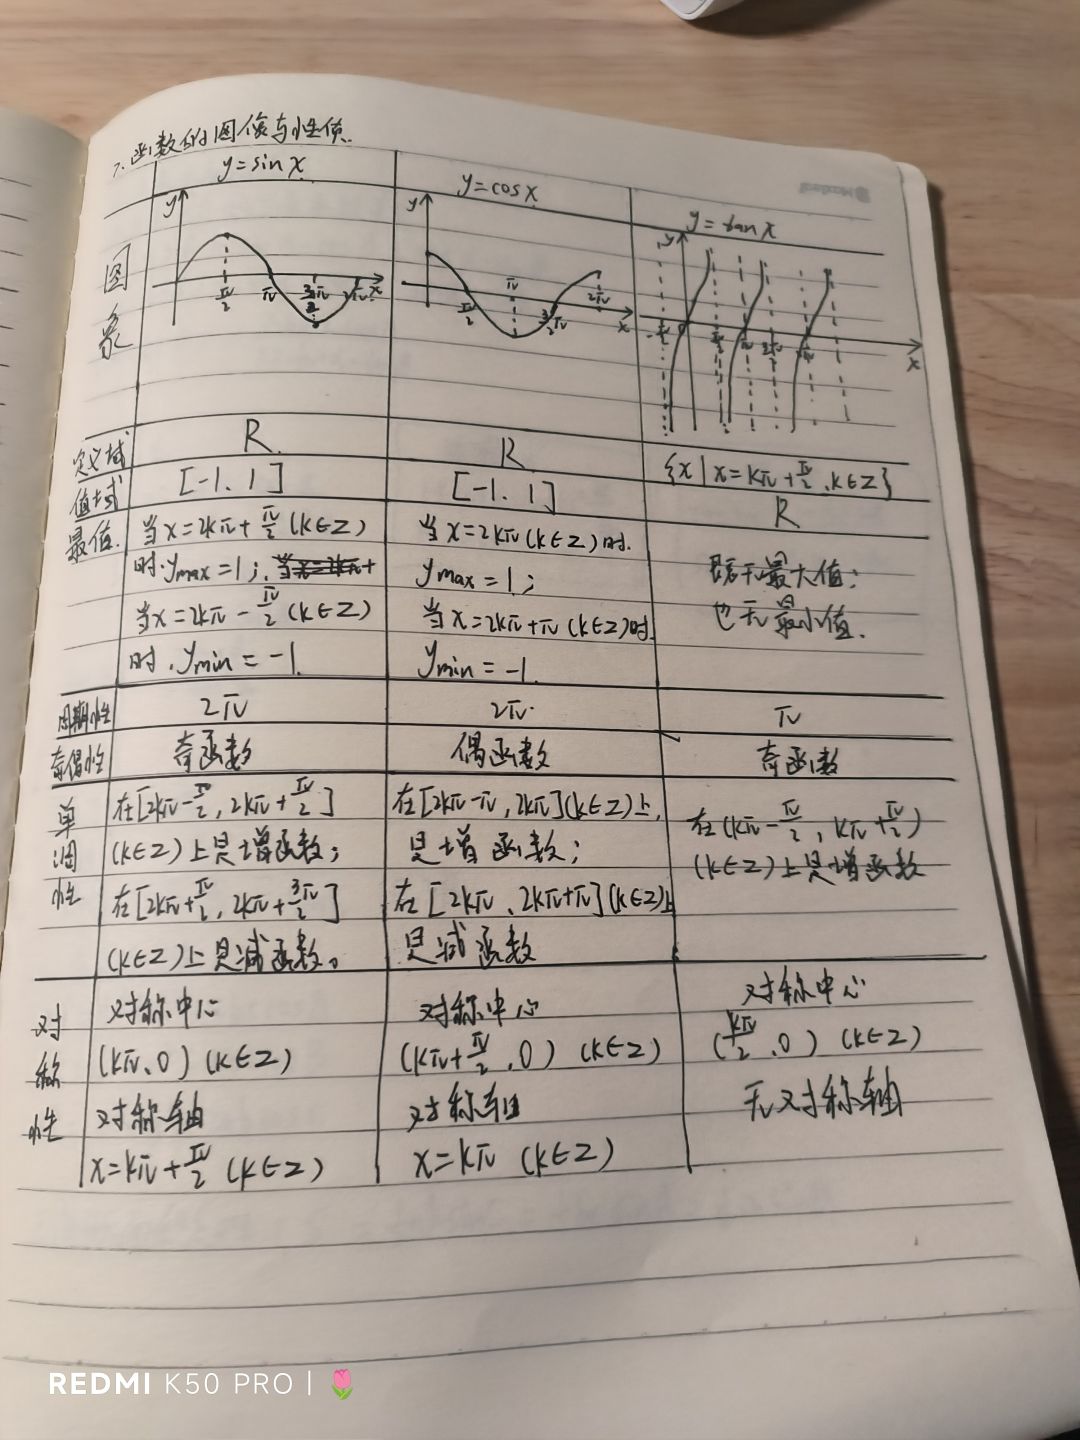 7. 函数的图像与性质.
y=sinx
y=cosx
y=tanx
图象
y
π/2
π
3/2π
2π
x
y
π/2
π
3/2π
2π
x
y
-π/2
π/2
π
x
定义域
R
R
{x|x=kπ+π/2,k∈Z}
值域
[-1、1]
[-1、1]
R
最值.
当x=2kπ+π/2(k∈Z)
时.ymax=1;
当x=2kπ-π/2(k∈Z)
时.ymin=-1.
当x=2kπ(k∈Z)时.
ymax=1;
当x=2kπ+π(k∈Z)时.
ymin=-1.
既无最大值;
也无最小值.
周期性
2π
2π
π
奇偶性
奇函数
偶函数
奇函数
单调性
在[2kπ-π/2,2kπ+π/2]
(k∈Z)上是增函数;
在[2kπ+π/2,2kπ+3π/2]
(k∈Z)上是减函数。
在[2kπ-π,2kπ](k∈Z)上,
是增函数;
在[2kπ、2kπ+π](k∈Z)上
是减函数
在(kπ-π/2,kπ+π/2)
(k∈Z)上是增函数
对称性
对称中心
(kπ、0)(k∈Z)
对称轴
x=kπ+π/2(k∈Z)
对称中心
(kπ+π/2、0)(k∈Z)
对称轴
x=kπ(k∈Z)
对称中心
(kπ/2、0)(k∈Z)
无对称轴
REDMI K50 PRO |